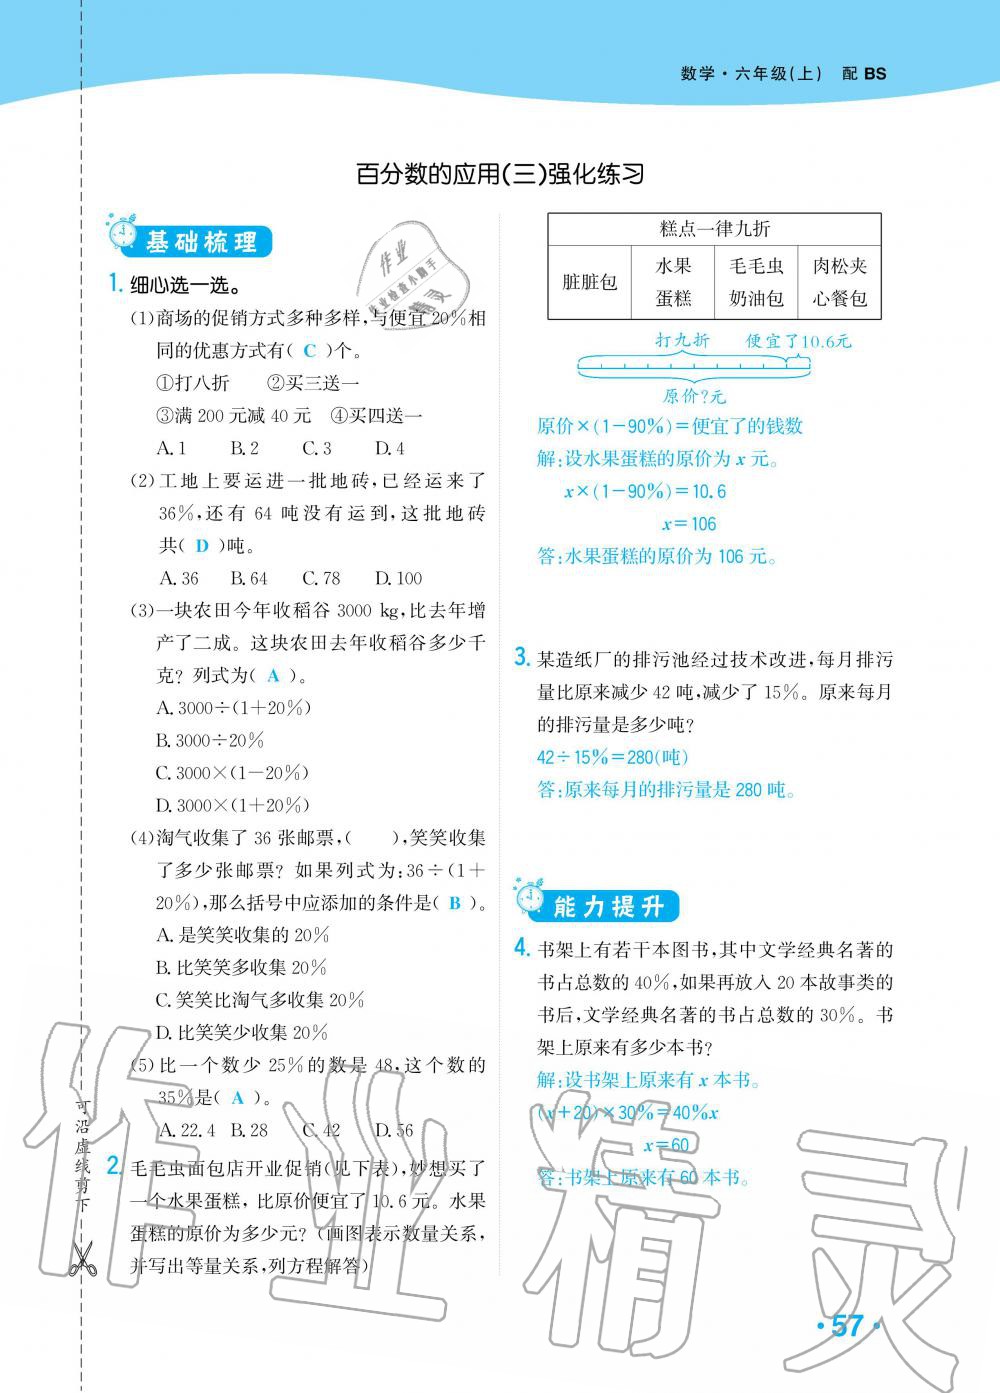 数学·六年级(上) 配 BS
百分数的应用(三)强化练习
基础梳理
1. 细心选一选。
(1)商场的促销方式多种多样,与便宜 20%相
同的优惠方式有( C )个。
①打八折 ②买三送一
③满 200 元减 40 元 ④买四送一
A. 1 B. 2 C. 3 D. 4
(2)工地上要运进一批地砖,已经运来了
36%,还有 64 吨没有运到,这批地砖
共( D )吨。
A. 36 B. 64 C. 78 D. 100
(3)一块农田今年收稻谷 3000 kg,比去年增
产了二成。这块农田去年收稻谷多少千
克?列式为( A )。
A. 3000÷(1+20%)
B. 3000÷20%
C. 3000×(1-20%)
D. 3000×(1+20%)
(4)淘气收集了 36 张邮票,( ),笑笑收集
了多少张邮票?如果列式为:36÷(1+
20%),那么括号中应添加的条件是( B )。
A. 是笑笑收集的 20%
B. 比笑笑多收集 20%
C. 笑笑比淘气多收集 20%
D. 比笑笑少收集 20%
(5)比一个数少 25%的数是 48,这个数的
35%是( A )。
A. 22.4 B. 28 C. 42 D. 56
2. 毛毛虫面包店开业促销(见下表),妙想买了
一个水果蛋糕,比原价便宜了 10.6 元。水果
蛋糕的原价为多少元?(画图表示数量关系,
并写出等量关系,列方程解答)
糕点一律九折
脏脏包 水果蛋糕 毛毛虫奶油包 肉松夹心餐包
打九折 便宜了10.6元
原价?元
原价×(1-90%)=便宜了的钱数
解:设水果蛋糕的原价为 x 元。
x×(1-90%)=10.6
x=106
答:水果蛋糕的原价为 106 元。
3. 某造纸厂的排污池经过技术改进,每月排污
量比原来减少 42 吨,减少了 15%。原来每月
的排污量是多少吨?
42÷15%=280(吨)
答:原来每月的排污量是 280 吨。
能力提升
4. 书架上有若干本图书,其中文学经典名著的
书占总数的 40%,如果再放入 20 本故事类的
书后,文学经典名著的书占总数的 30%。书
架上原来有多少本书?
解:设书架上原来有 x 本书。
(x+20)×30%=40%x
x=60
答:书架上原来有 60 本书。
可沿虚线剪下
·57·
作业
作业检查小助手
精灵
作业精灵